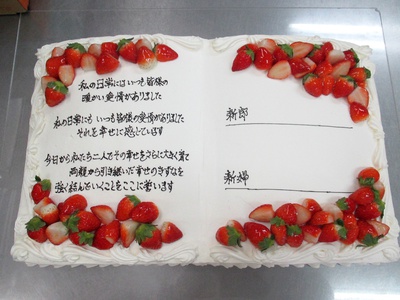 私の日常にはいつも皆様の
暖かい愛情がありました
私の日常にも いつも皆様の愛情がありました
それを幸せに感じています
今日から私たち二人でその幸せをさらに大きく育て
両親から引き継いだ幸せのきずなを
強く結んでいくことをここに誓います
新郎
新婦